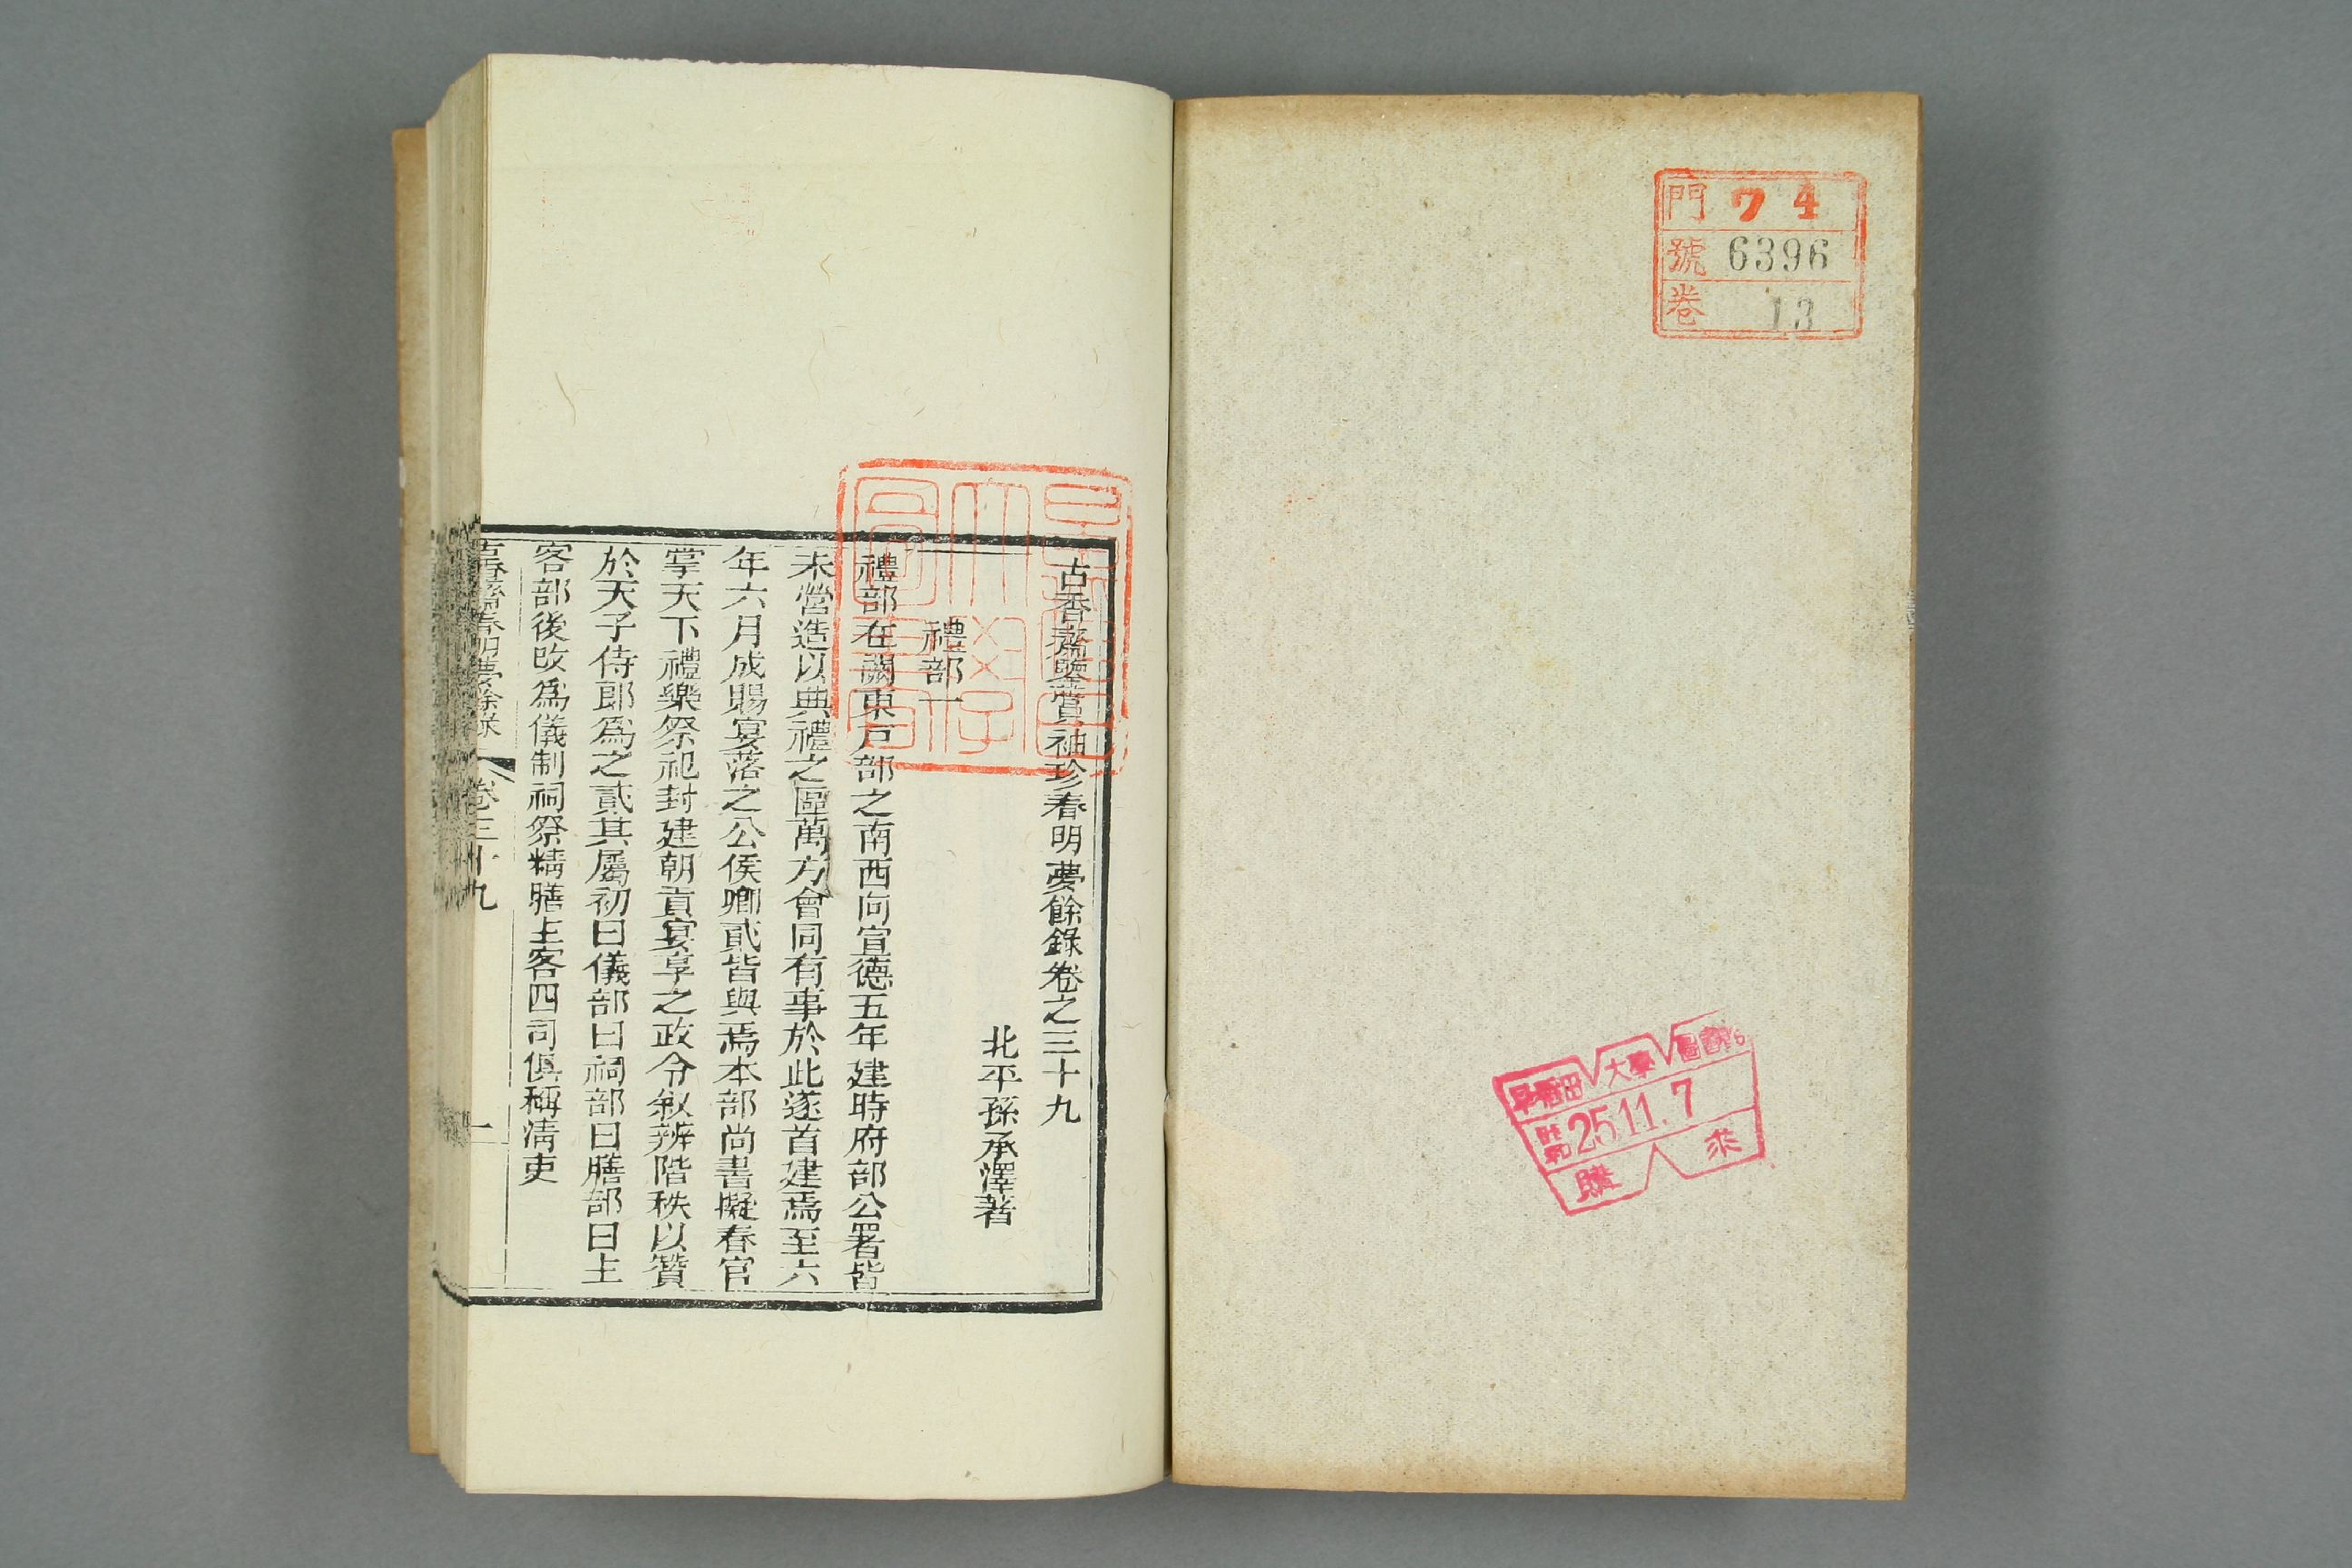 門 ワ 4
號 6396
卷 13
早稻田大學圖書
昭和 25.11.7
購求
古香齋鑒賞袖珍春明夢餘錄卷之三十九
北平孫承澤著
禮部一
禮部在闕東戸部之南西向宣德五年建時府部公署皆
未營造以典禮之區萬方會同有事於此遂首建焉至六
年六月成賜宴落之公侯卿貳皆與焉本部尚書擬春官
掌天下禮樂祭祀封建朝貢宴享之政令敘辨階秩以贊
於天子侍郎爲之貳其屬初曰儀部曰祠部曰膳部曰主
客部後改爲儀制祠祭精膳主客四司俱稱清吏
古香齋春明夢餘錄 卷三十九 一